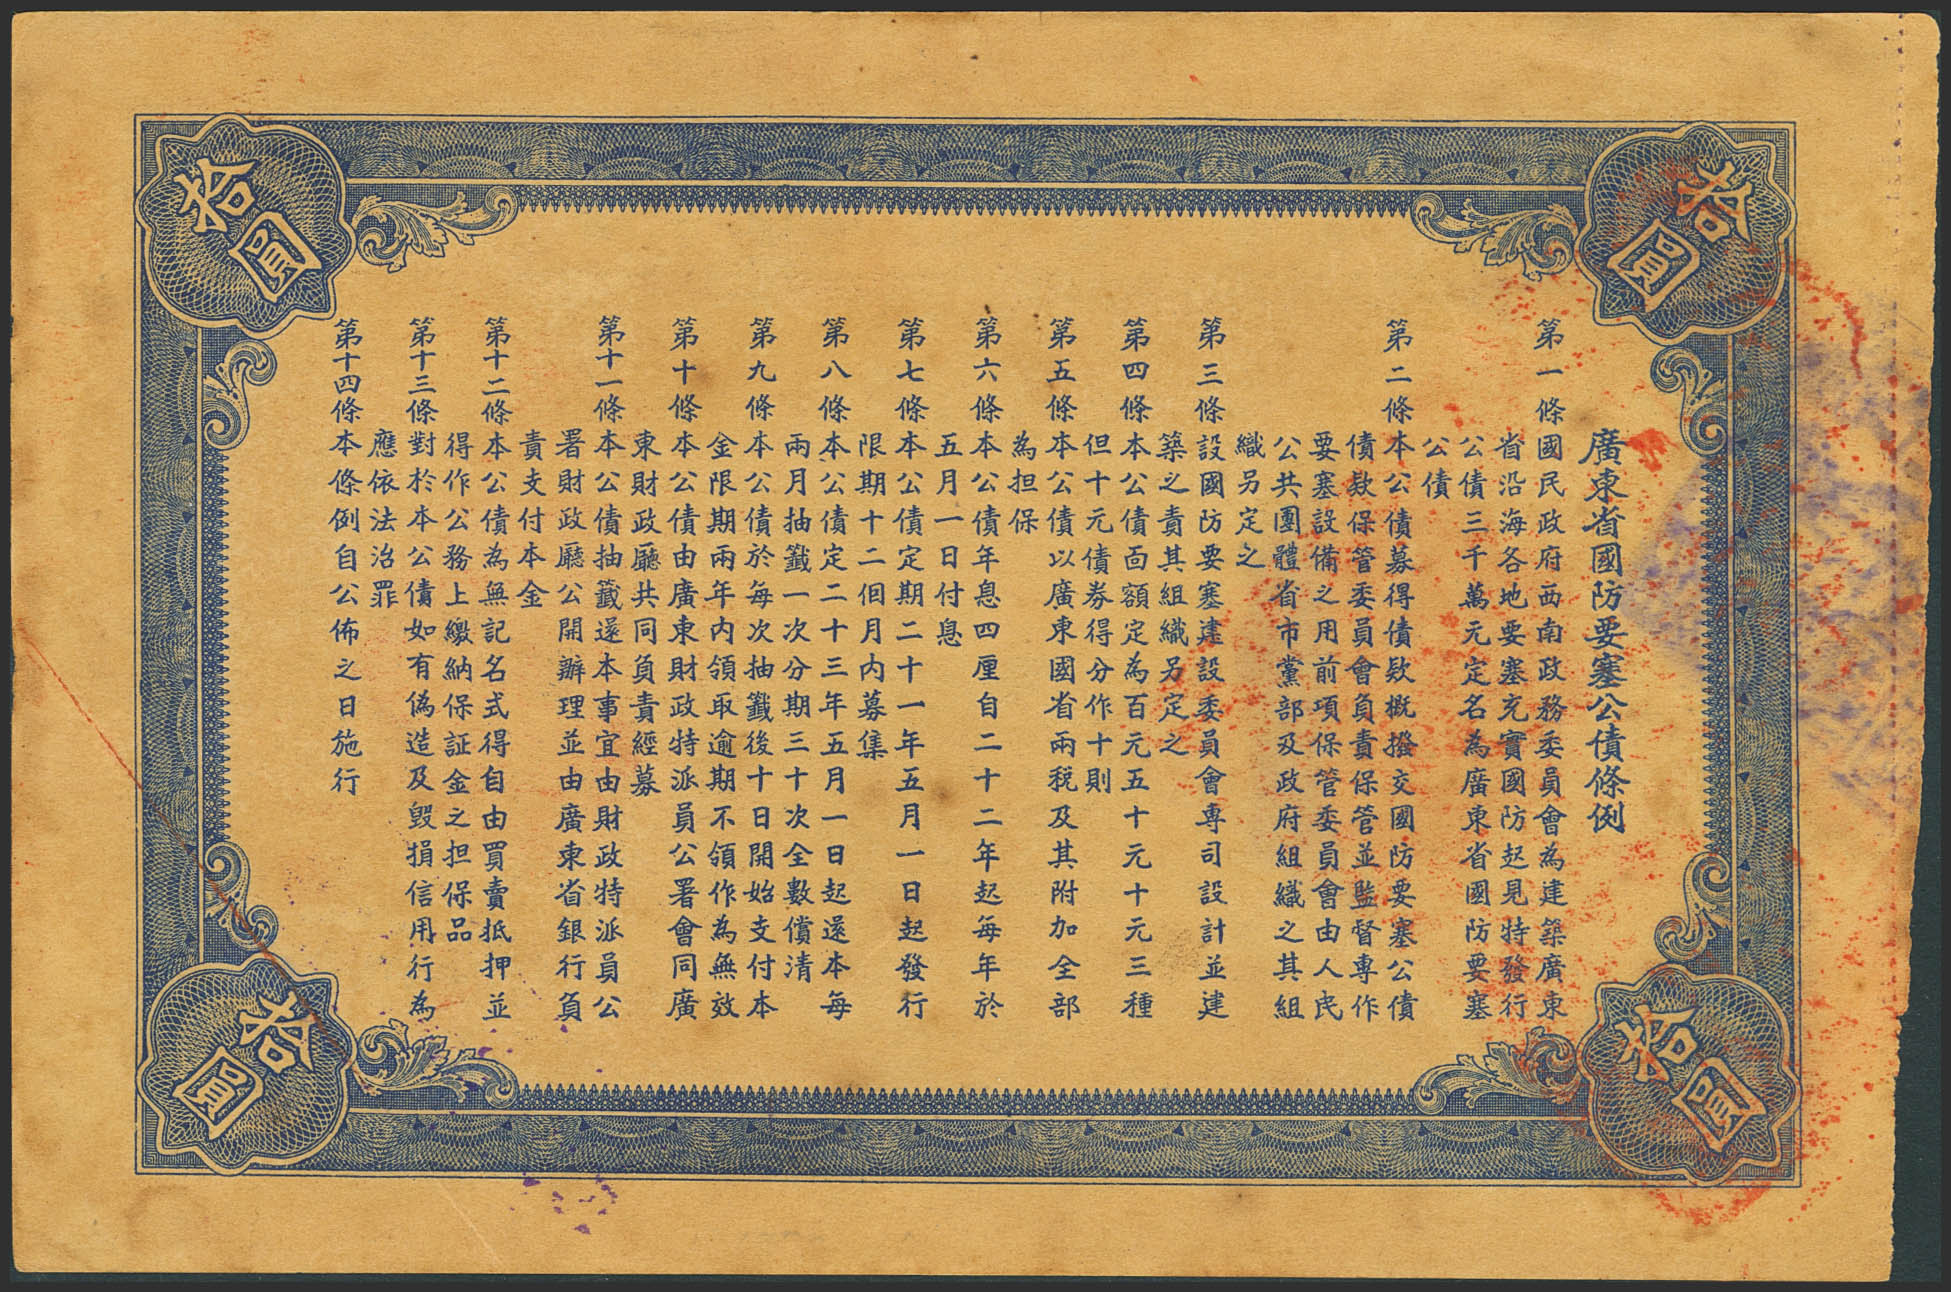 廣東省國防要塞公債條例
第一條國民政府西南政務委員會為建築廣東
省沿海各地要塞充實國防起見特發行
公債三千萬元定名為廣東省國防要塞
公債
第二條本公債募得債欵概撥交國防要塞公債
債欵保管委員會負責保管並監督專作
要塞設備之用前項保管委員會由人民
公共團體省市黨部及政府組織之其組
織另定之
第三條設國防要塞建設委員會專司設計並建
築之責其組織另定之
第四條本公債面額定為百元五十元十元三種
但十元債券得分作十則
第五條本公債以廣東國省兩稅及其附加全部
為担保
第六條本公債年息四厘自二十二年起每年於
五月一日付息
第七條本公債定期二十一年五月一日起發行
限期十二個月內募集
第八條本公債定二十三年五月一日起還本每
兩月抽籤一次分期三十次全數償清
第九條本公債於每次抽籤後十日開始支付本
金限期兩年內領取逾期不領作為無效
第十條本公債由廣東財政特派員公署會同廣
東財政廳共同負責經募
第十一條本公債抽籤還本事宜由財政特派員公
署財政廳公開辦理並由廣東省銀行負
責支付本金
第十二條本公債為無記名式得自由買賣抵押並
得作公務上繳納保証金之担保品
第十三條對於本公債如有偽造及毀損信用行為
應依法治罪
第十四條本條例自公佈之日施行
拾圓
拾圓
拾圓
拾圓